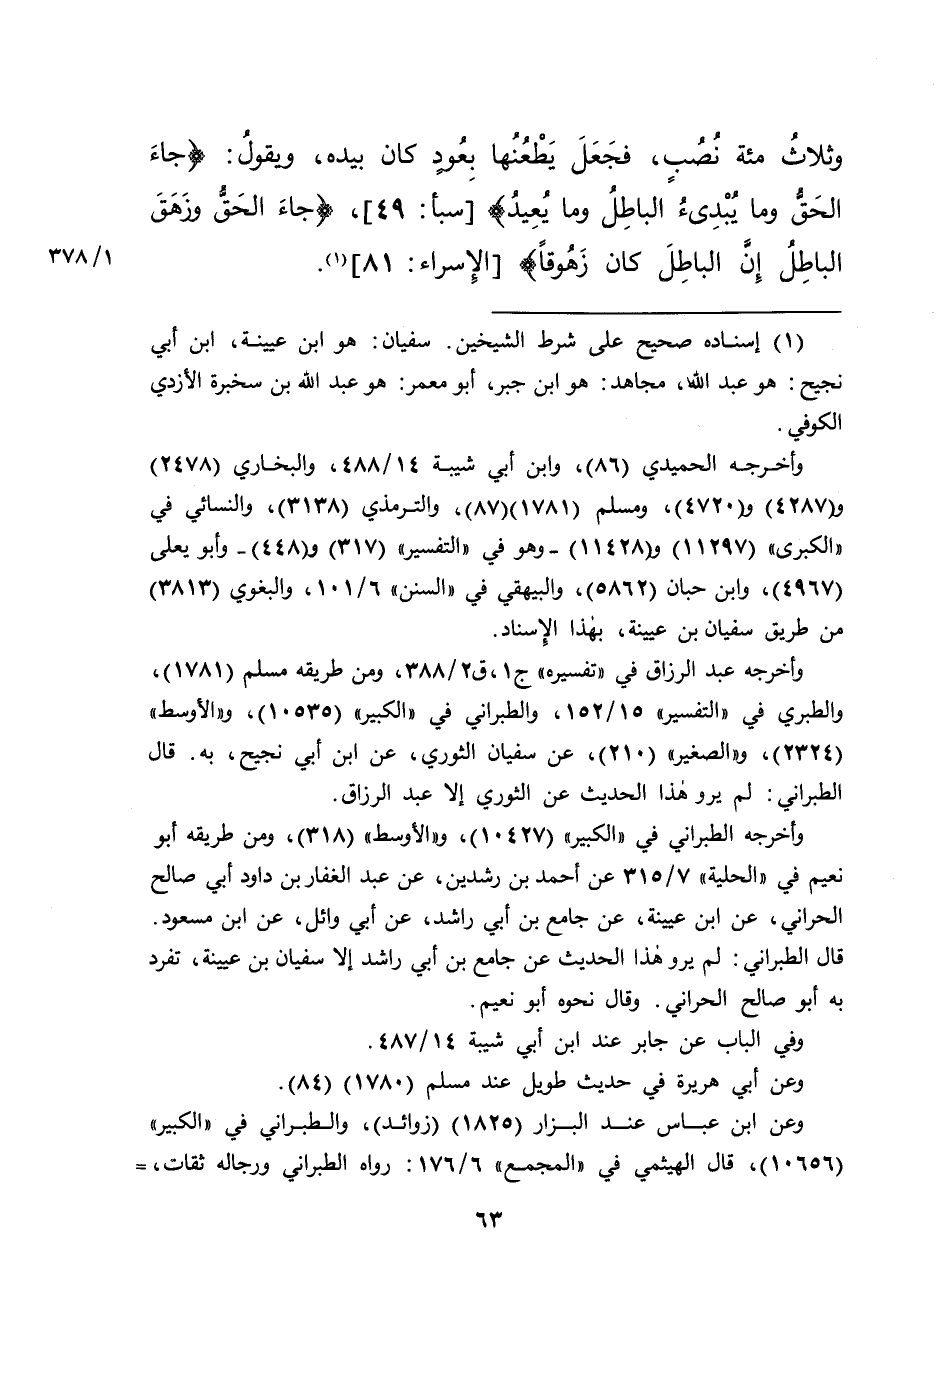 وثلاثُ مئة نُصُبٍ، فجَعَلَ يَطْعُنُها بِعُودٍ كان بيده، ويقولُ: ﴿جاءَ
الحَقُّ وما يُبْدِىءُ الباطِلُ وما يُعِيدُ﴾ [سبأ: ٤٩]، ﴿جاءَ الحَقُّ وزَهَقَ
الباطِلُ إنَّ الباطِلَ كان زَهُوقاً﴾ [الإسراء: ٨١](١).
٣٧٨/١
(١) إسناده صحيح على شرط الشيخين. سفيان: هو ابن عيينة، ابن أبي
نجيح: هو عبد الله، مجاهد: هو ابن جبر، أبو معمر: هو عبد الله بن سخبرة الأزدي
الكوفي.
وأخرجه الحميدي (٨٦)، وابن أبي شيبة ٤٨٨/١٤، والبخاري (٢٤٧٨)
و(٤٢٨٧) و(٤٧٢٠)، ومسلم (١٧٨١)(٨٧)، والترمذي (٣١٣٨)، والنسائي في
«الكبرى» (١١٢٩٧) و(١١٤٢٨) -وهو في «التفسير» (٣١٧) و(٤٤٨)- وأبو يعلى
(٤٩٦٧)، وابن حبان (٥٨٦٢)، والبيهقي في «السنن» ١٠١/٦، والبغوي (٣٨١٣)
من طريق سفيان بن عيينة، بهٰذا الإسناد.
وأخرجه عبد الرزاق في «تفسيره» ج١،ق٣٨٨/٢، ومن طريقه مسلم (١٧٨١)،
والطبري في «التفسير» ١٥٢/١٥، والطبراني في «الكبير» (١٠٥٣٥)، و«الأوسط»
(٢٣٢٤)، و«الصغير» (٢١٠)، عن سفيان الثوري، عن ابن أبي نجيح، به. قال
الطبراني: لم يرو هٰذا الحديث عن الثوري إلا عبد الرزاق.
وأخرجه الطبراني في «الكبير» (١٠٤٢٧)، و«الأوسط» (٣١٨)، ومن طريقه أبو
نعيم في «الحلية» ٣١٥/٧ عن أحمد بن رشدين، عن عبد الغفار بن داود أبي صالح
الحراني، عن ابن عيينة، عن جامع بن أبي راشد، عن أبي وائل، عن ابن مسعود.
قال الطبراني: لم يرو هٰذا الحديث عن جامع بن أبي راشد إلا سفيان بن عيينة، تفرد
به أبو صالح الحراني. وقال نحوه أبو نعيم.
وفي الباب عن جابر عند ابن أبي شيبة ٤٨٧/١٤.
وعن أبي هريرة في حديث طويل عند مسلم (١٧٨٠) (٨٤).
وعن ابن عباس عند البزار (١٨٢٥) (زوائد)، والطبراني في «الكبير»
(١٠٦٥٦)، قال الهيثمي في «المجمع» ١٧٦/٦: رواه الطبراني ورجاله ثقات،=
٦٣